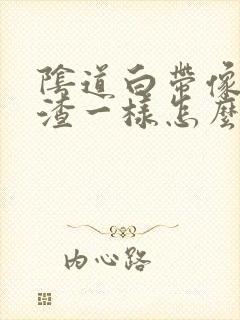 陰道白帶像
渣一樣怎麼
内心路